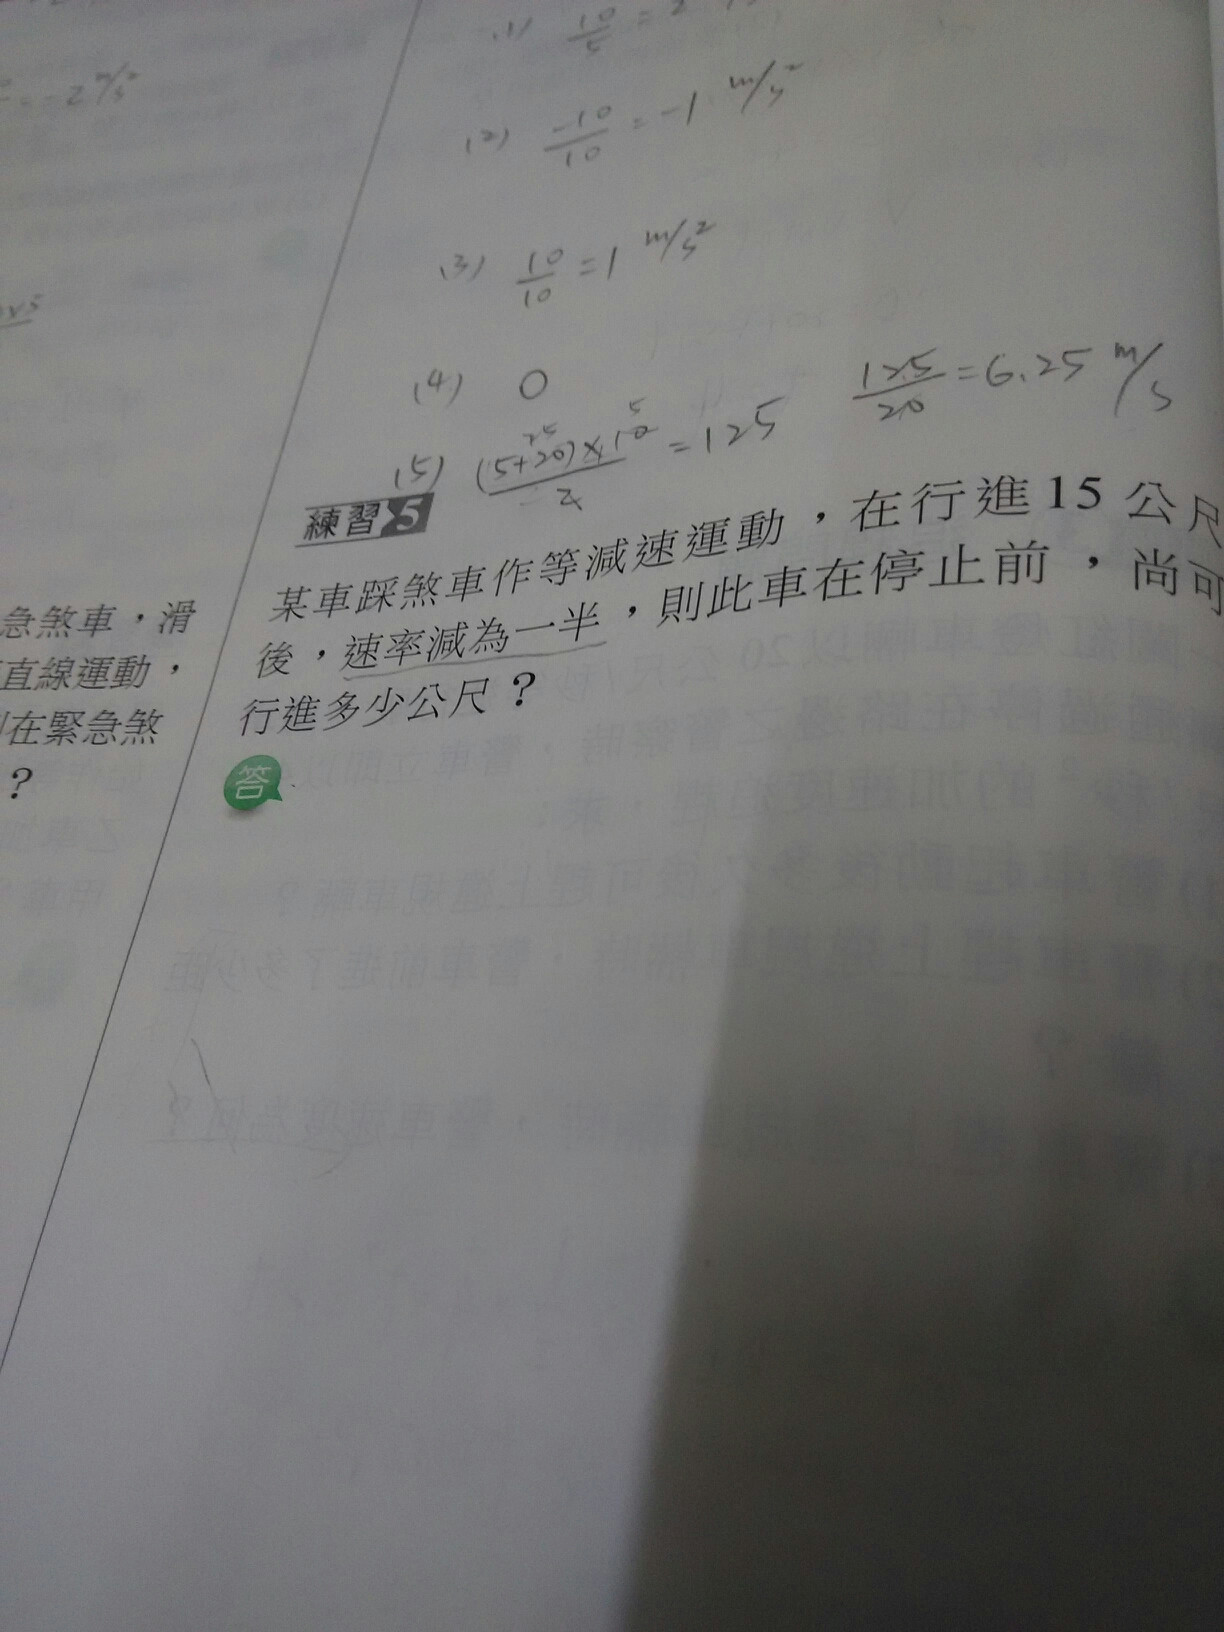 = -2 m/s²
(1) 10/5 = 2
(2) -10/10 = -1 m/s²
(3) 10/10 = 1 m/s²
(4) 0
(5) (5+20)×10/2 = 125
25
5
125/20 = 6.25 m/s
練習 5
某車踩煞車作等減速運動，在行進15公尺
後，速率減為一半，則此車在停止前，尚可
行進多少公尺？
答
急煞車，滑
直線運動，
在緊急煞
？